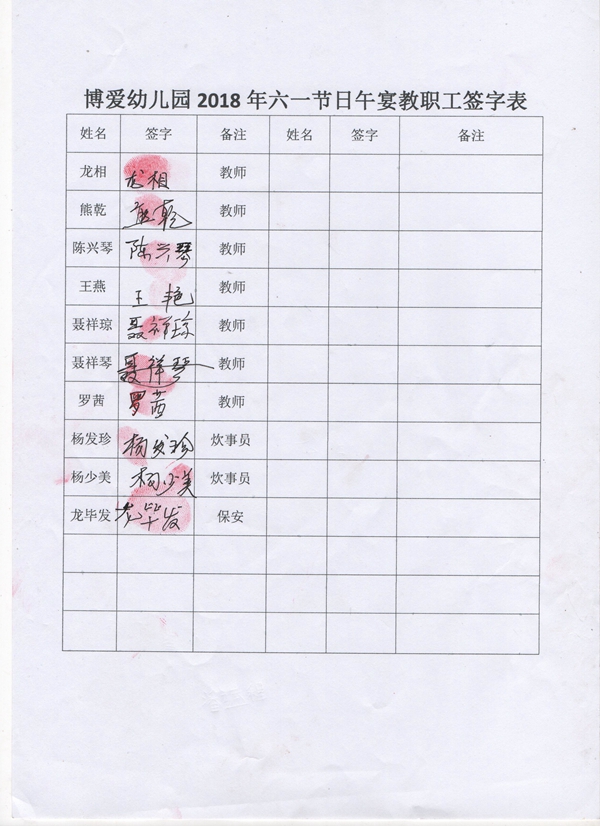 博爱幼儿园 2018 年六一节日午宴教职工签字表
姓名 签字 备注 姓名 签字 备注
龙相 龙相 教师
熊乾 熊乾 教师
陈兴琴 陈兴琴 教师
王燕 王艳 教师
聂祥琼 聂祥琼 教师
聂祥琴 聂祥琴 教师
罗茜 罗茜 教师
杨发珍 杨发珍 炊事员
杨少美 杨少美 炊事员
龙毕发 龙毕发 保安